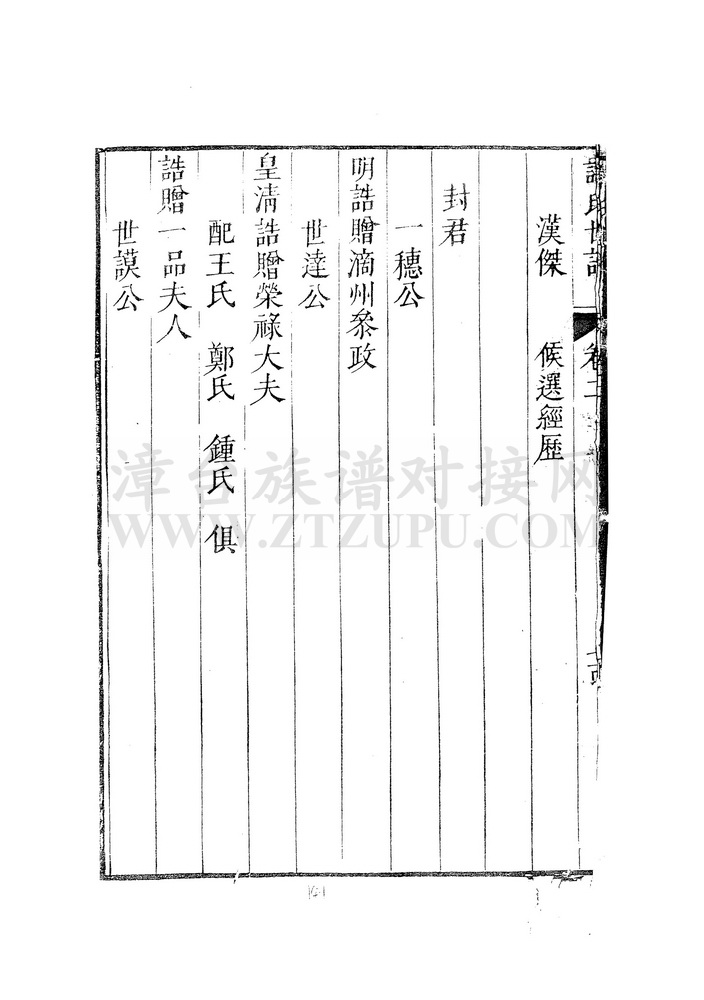 氏世譜 卷二
漢傑 候選經歷
封君
一穗公
明誥贈滴州叅政
世達公
皇清誥贈榮祿大夫
配王氏 鄭氏 鍾氏 俱
誥贈一品夫人
世謨公
漳台族谱对接网
WWW.ZTZUPU.COM